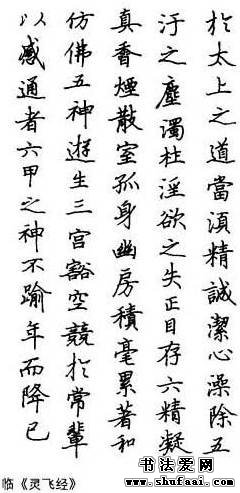 於太上之道當湏精誠潔心澡除五
汙之塵濁杜淫欲之失正目存六精凝
真香煙散室孤身幽房積毫累著和
仿佛五神遊生三宫豁空競於常輩
以感通者六甲之神不踰年而降已
临《灵飞经》
书法爱好网
www.shufaai.com